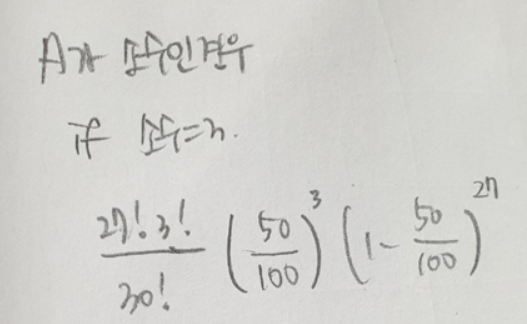 A가 모수인경우
if 모수=n.
27!3!/30! (50/100)^3 (1-50/100)^27